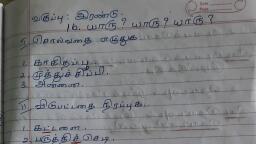 வகுப்பு: இரண்டு
16. யாரு? யாரு? யாரு?
I. சொல்வதை எழுதுக.
1. காகிதப்பூ
2. முத்துச்சிப்பி.
3. அன்னை.
II. விடுபட்டதை நிரப்புக.
1. கட்டளை.
2. பருத்திச் செடி.